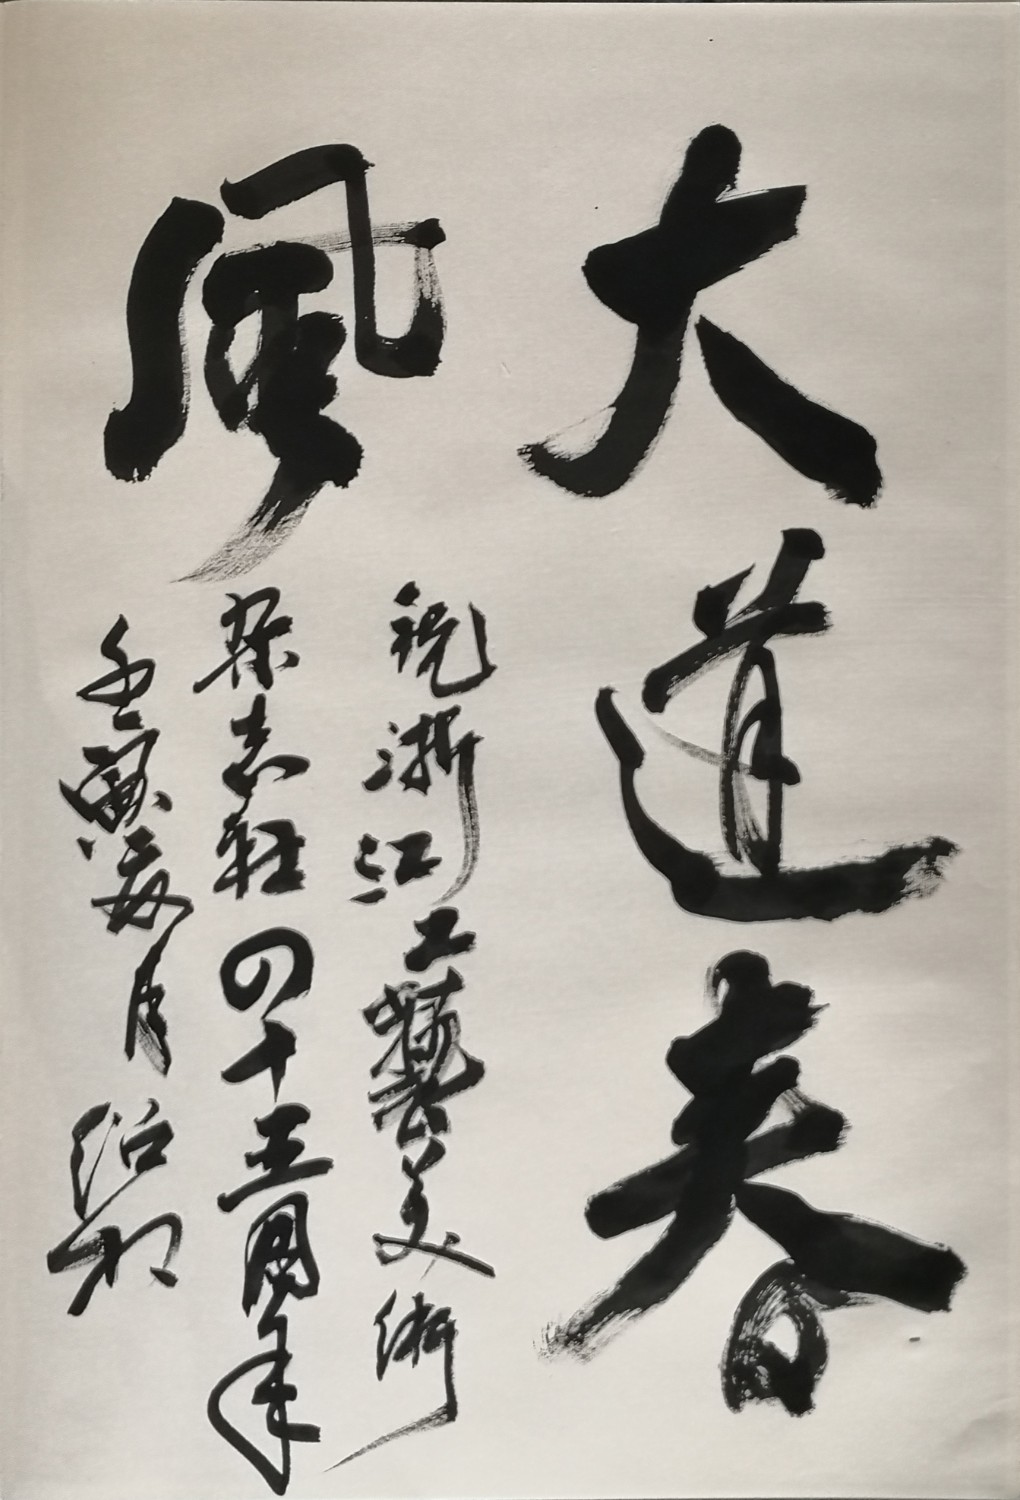 大道春
風
祝浙江工藝美術
杂志社四十五周年
壬寅夏月